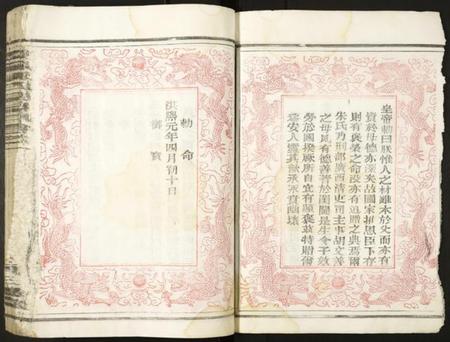 皇帝勅曰朕惟人之材雖本於父而亦有
資於母德亦深矣故國家推恩臣下存
則有褒榮之命沒亦有追贈之典焉爾
朱氏乃刑部廣西清吏司主事胡文善
之母夙有德善著於閨閫是生令子效
勞於國揆厥所自宜有顯褒茲特贈爾
為安人靈其歆承永賁幽壤
勅命
洪熙元年四月初十日
寶